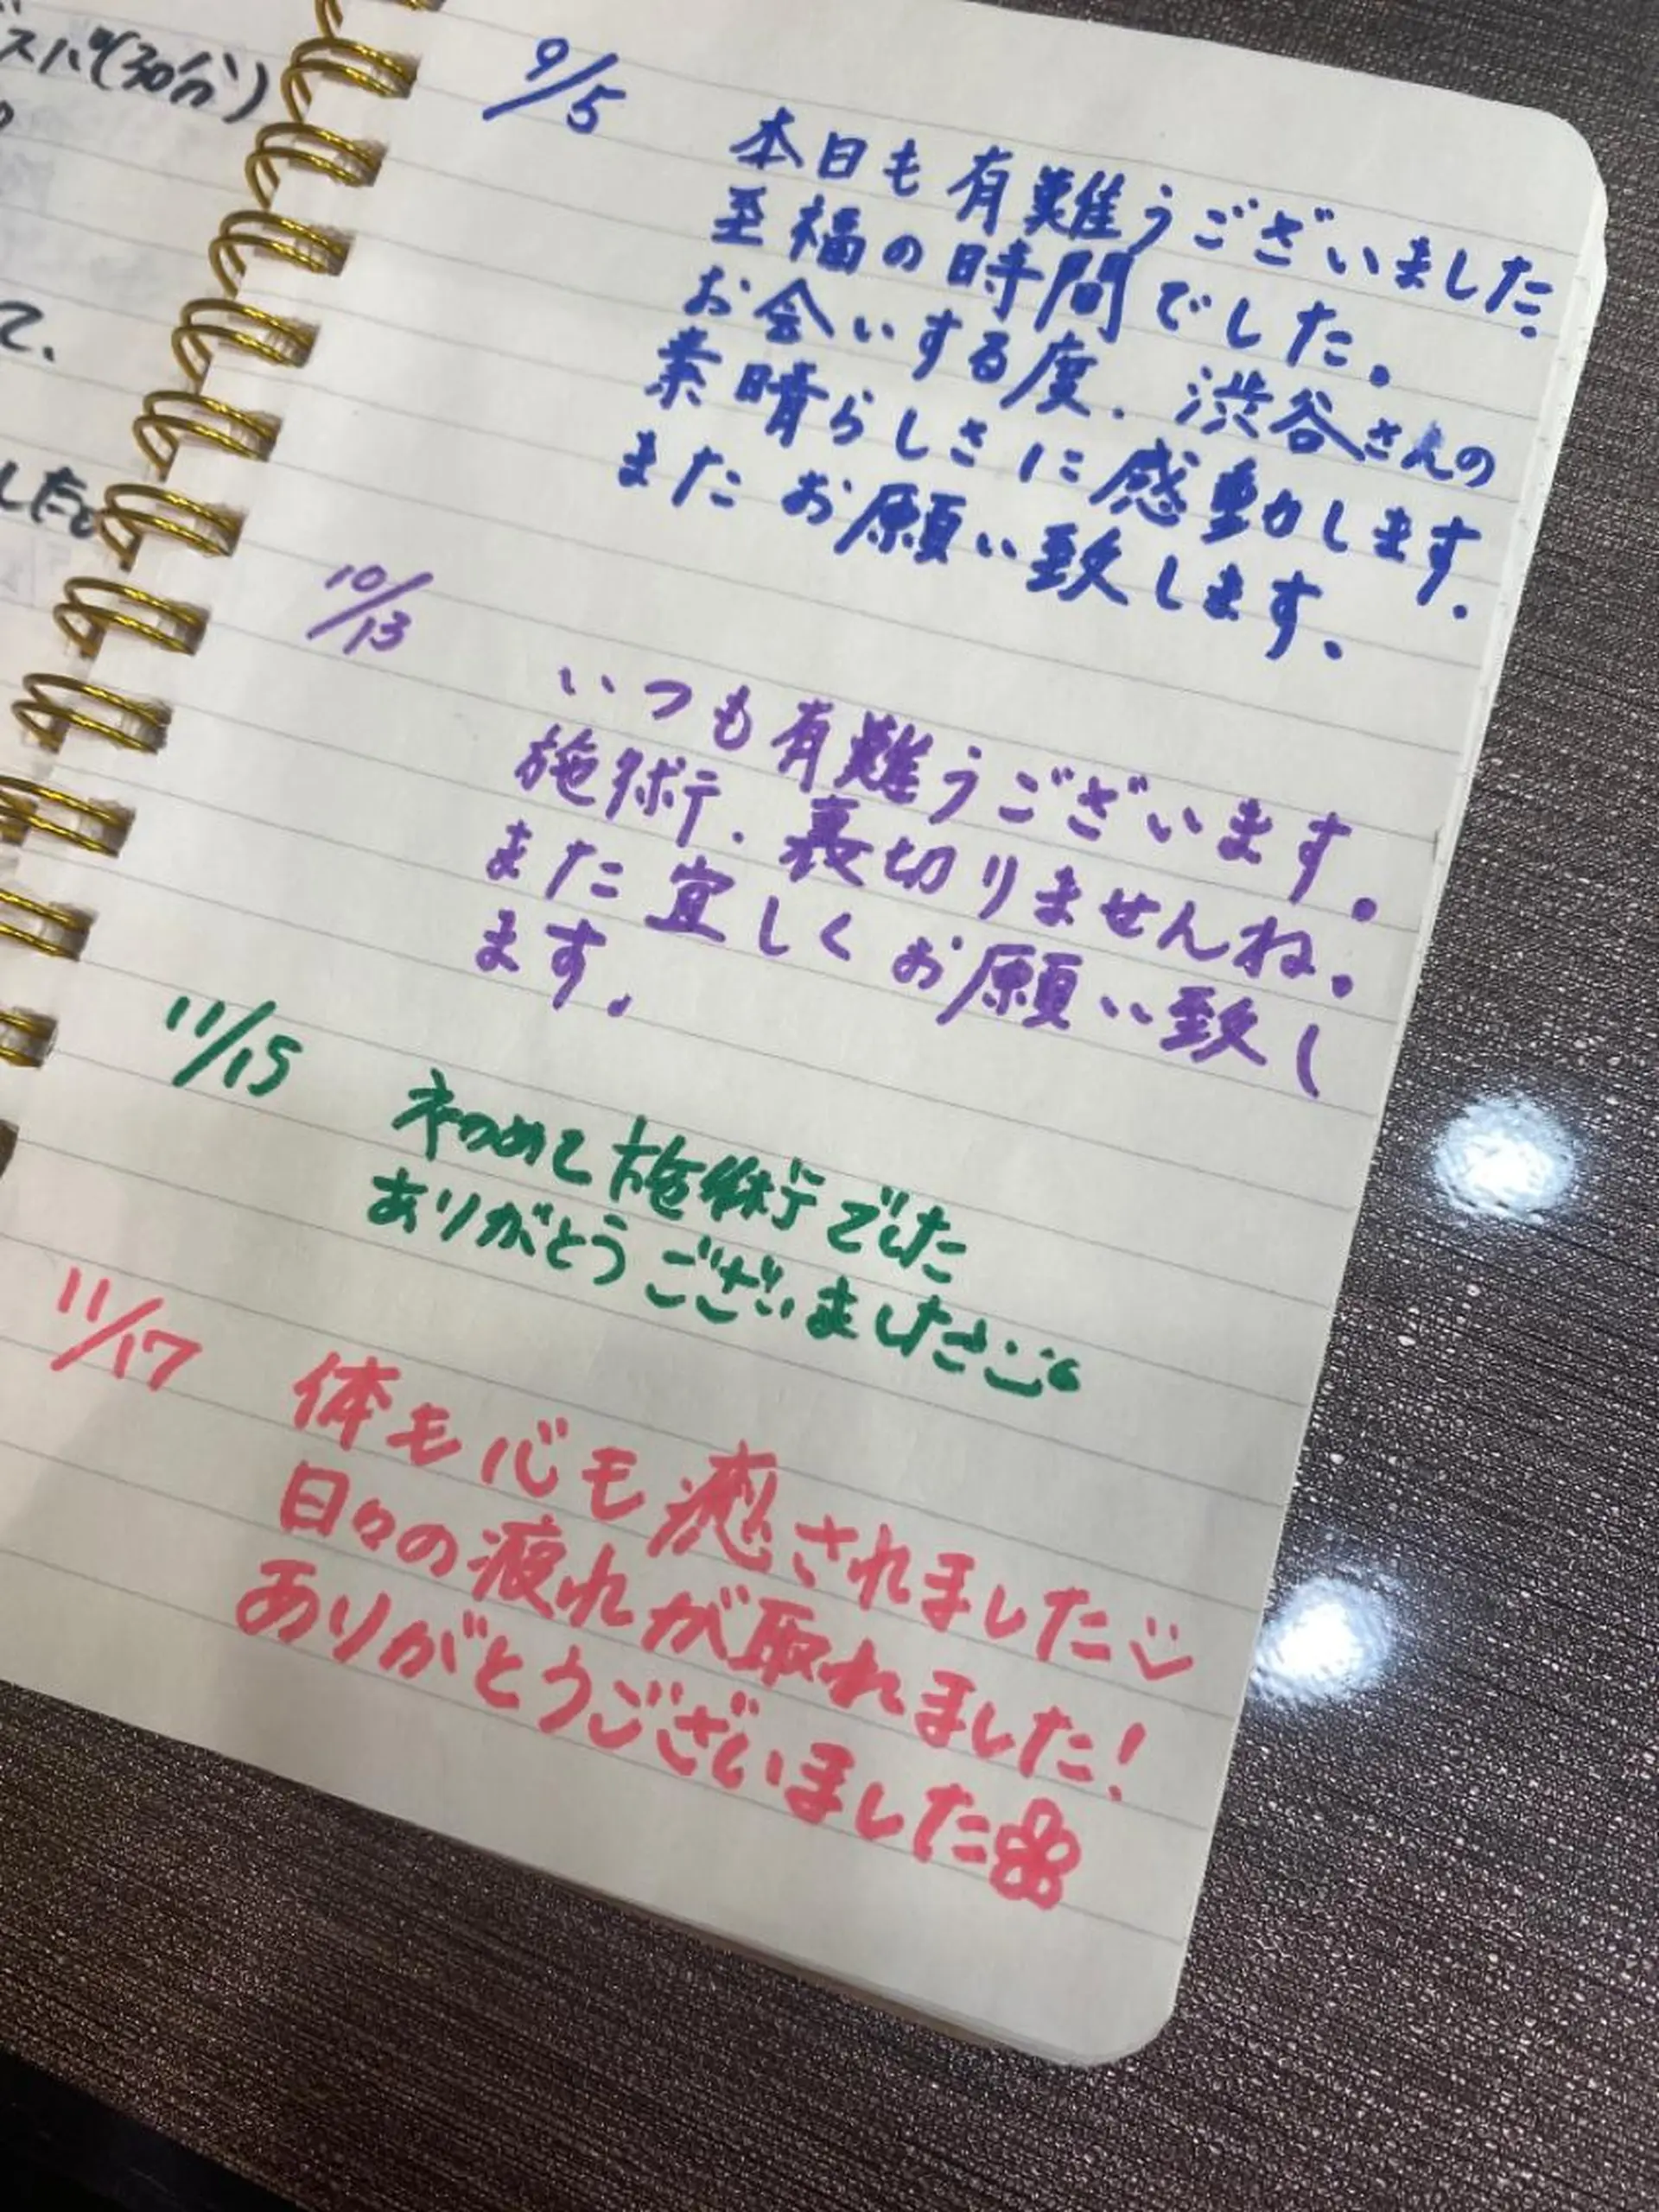 スパ(30分)
て、
したと
9/5
本日も有難うございました。
至福の時間でした。
お会いする度、渋谷さんの
素晴らしさに感動します。
またお願い致します。
10/13
いつも有難うございます。
施術、裏切りませんね。
また宜しくお願い致し
ます。
11/15
初めて施術でした
ありがとうございました
11/17
体も心も癒されました
日々の疲れが取れました!
ありがとうございました